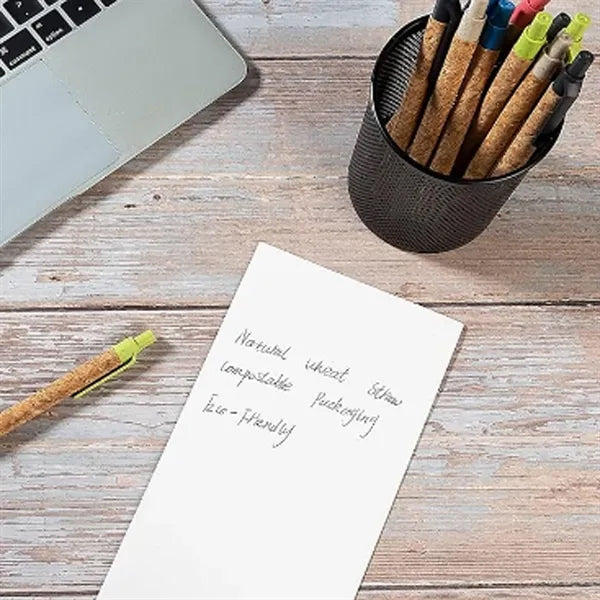 Natural wheat Straw
compostable Packaging
Eco-Friendly